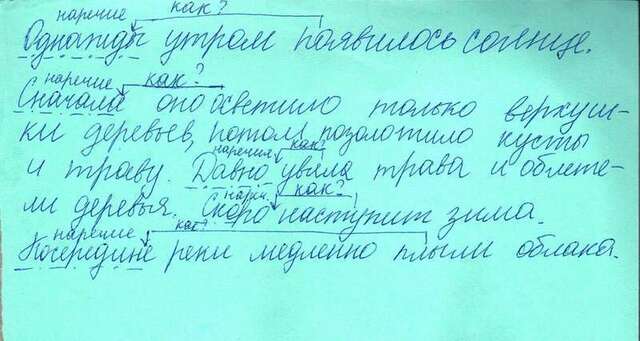 наречие как?
Однажды утром появилось солнце.
наречие как?
Сначала оно осветило только верхуш-
ки деревьев, потом позолотило кусты
наречия как?
и траву. Давно увяла трава и облете-
нареч. как?
ли деревья. Скоро наступит зима.
наречие как?
Посередине реки медленно плыли облака.